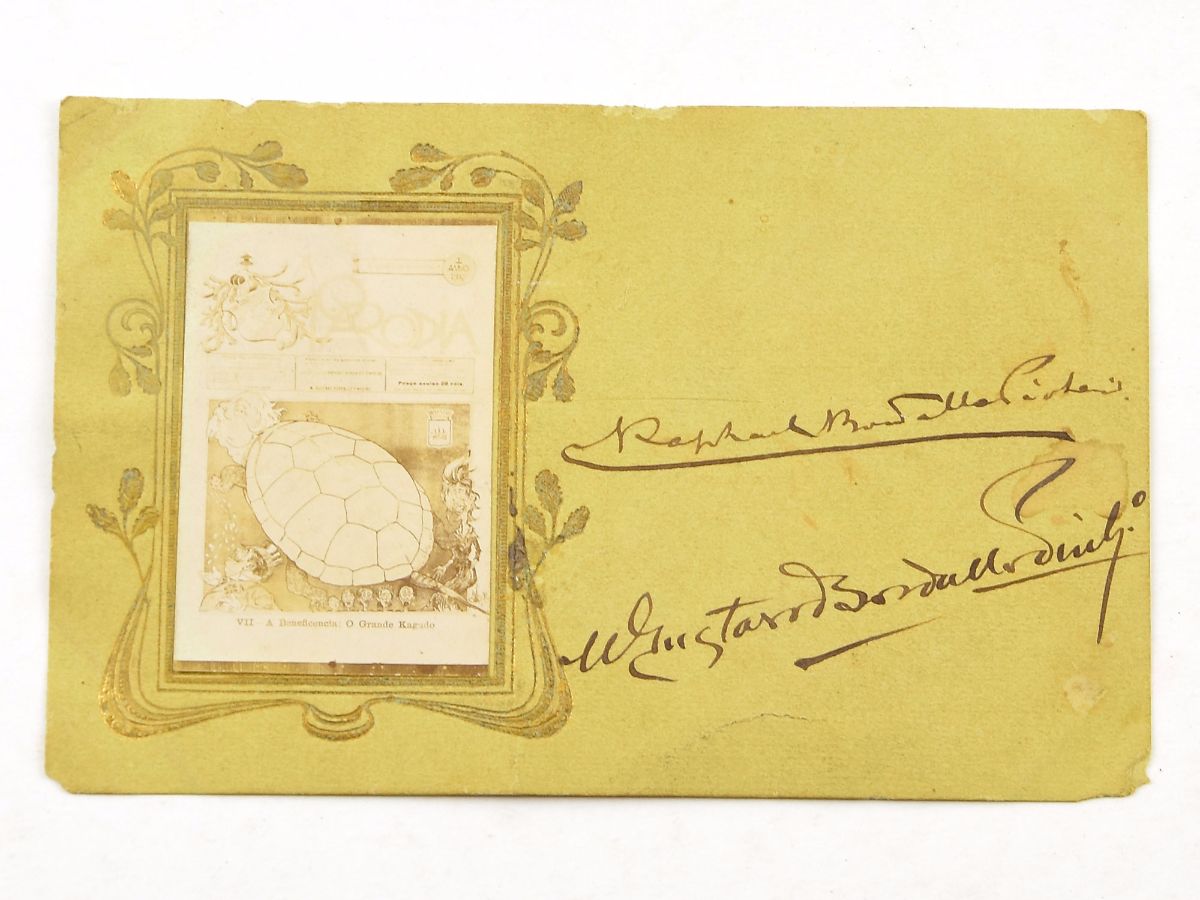 A PARODIA
Preço avulso 20 réis
VII - A Beneficencia: O Grande Kagado
Raphael Bordallo Pinheiro.
M Gustavo Bordallo Pinh.º